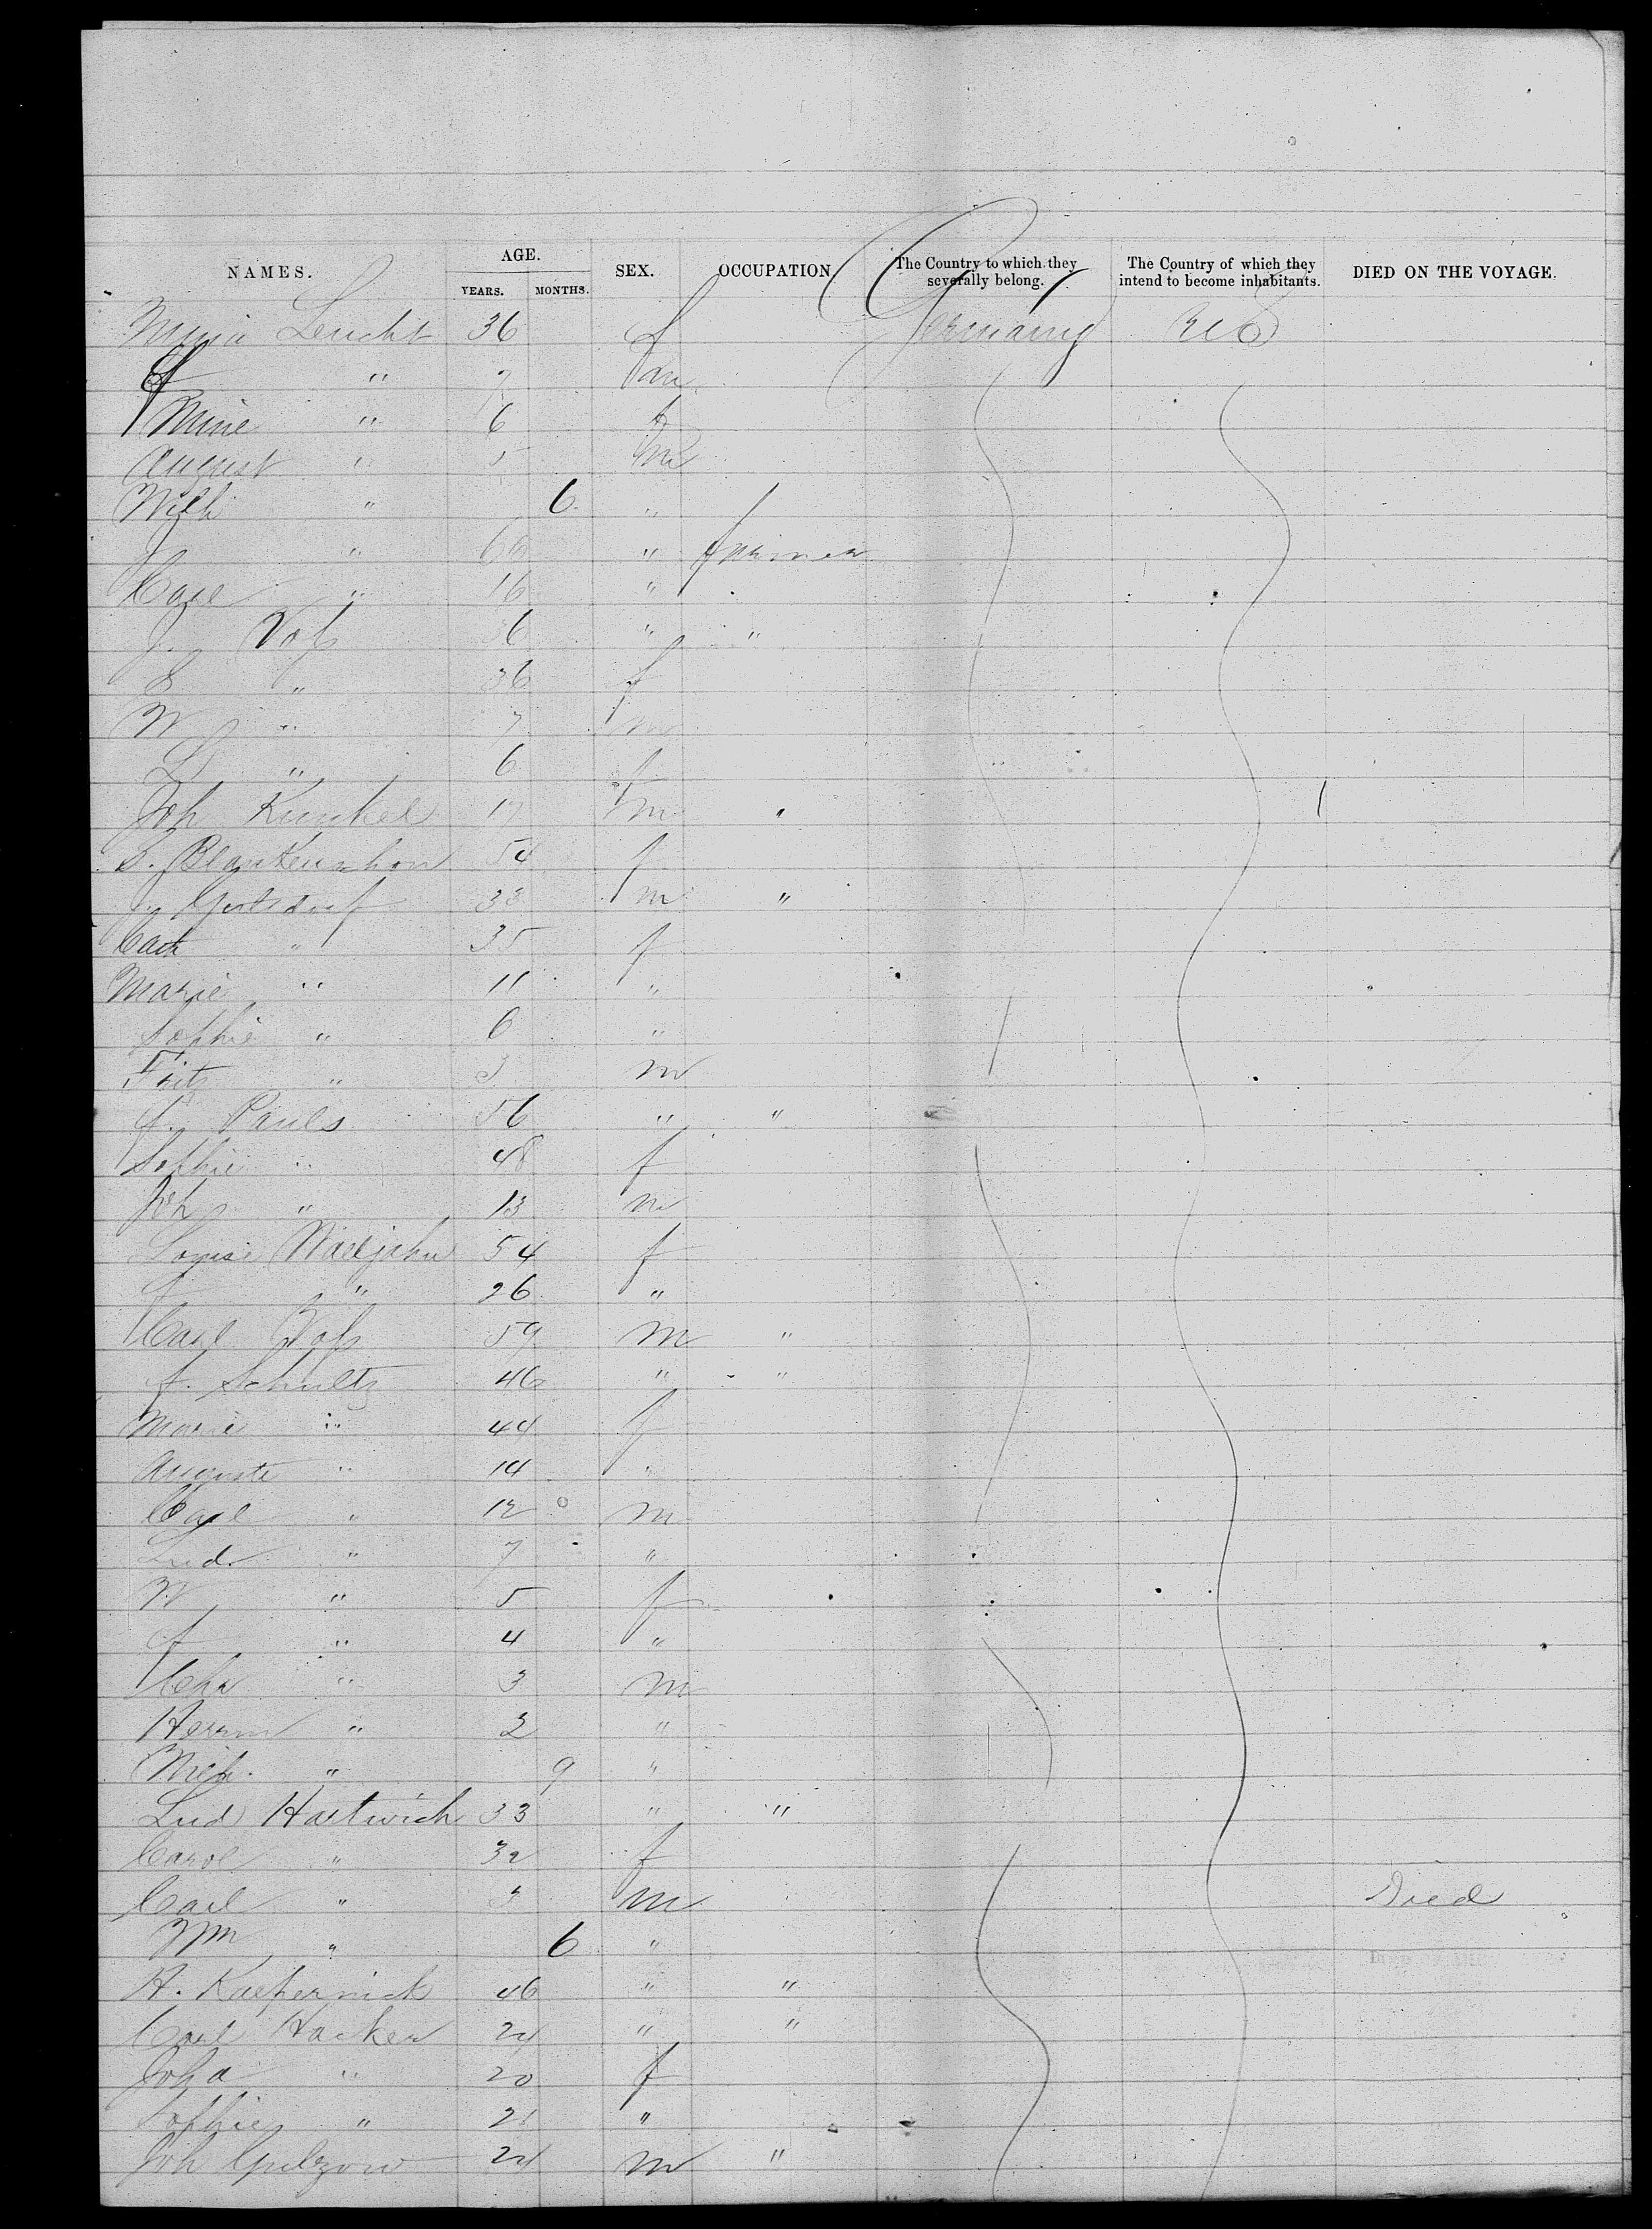 NAMES. AGE. SEX. OCCUPATION. The Country to which they severally belong. The Country of which they intend to become inhabitants. DIED ON THE VOYAGE.
YEARS. MONTHS.
Leucht 36 f Germany US
" 7 m
Mine " 6 f
August " 5 m
Wilh " 6 "
J " " farmer
Carl " 16 "
J. Voß 36 " "
S " 36 f
W " 7 m
L " 6 f
Joh Kunkel 17 m "
S. Blankenhorn 54 f
J. 33 m "
Cath " 35 f
Marie " 11 "
Sophie " 6 "
Fritz " 3 m
f. Pauls 56 " "
Sophie " 48 f
Joh " 13 m
Louise Wiedjahn 54 f
f " 26 "
Carl Voß 59 m "
f. Schultz 46 " "
Marie " 44 f
Auguste " 14 "
Carl " 12 m
Lud. " 7 "
W " 5 f
f " 4 "
Chr " 3 m
Herm " 2 "
Wilh. " 9 "
Lud Hartwich 33 " "
Carol " 32 f
Carl " 3 m Died
Wm " 6 "
H. Kaepernick 46 " "
Carl Hacker 24 " "
Joha " 20 f
Sophie " 21 "
Joh Gulzow 24 m "